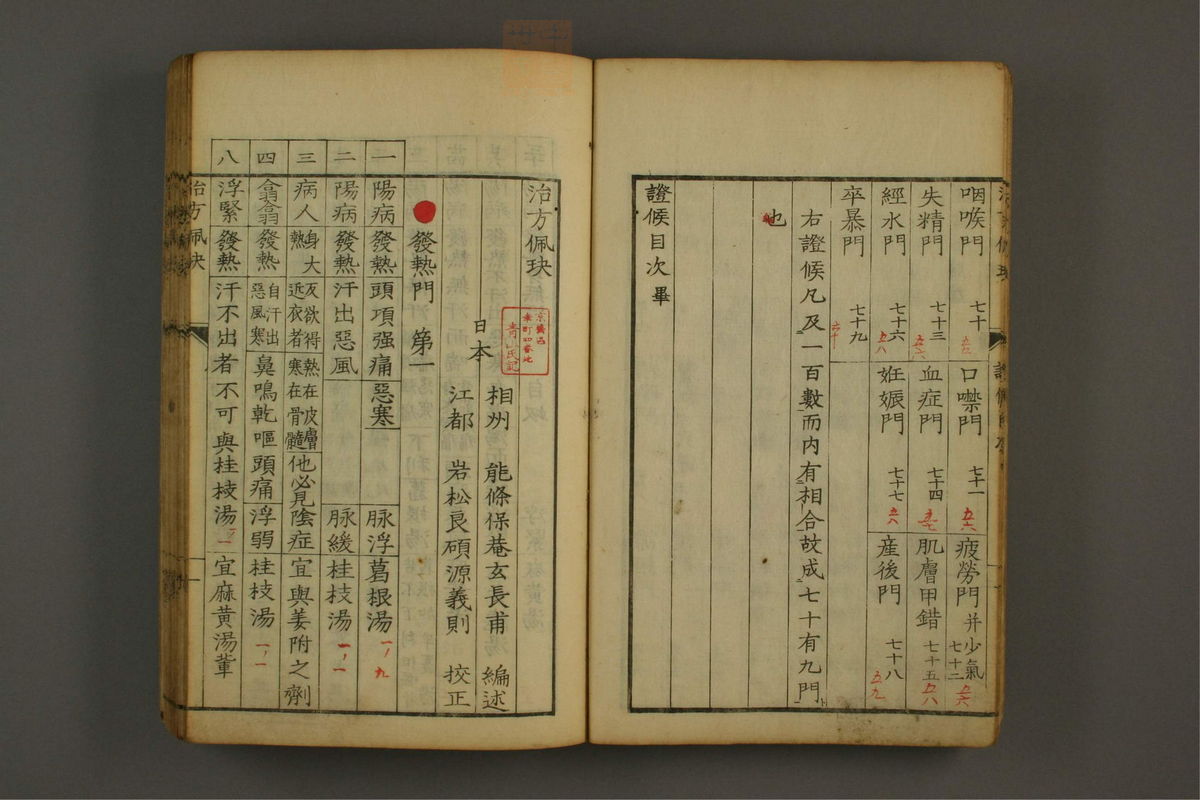 咽喉門 七十 五六 口噤門 七十一 五六 疲勞門 并少氣 七十二 五六
失精門 七十三 五六 血症門 七十四 五七 肌膚甲錯 七十五 五八
經水門 七十六 五八 妊娠門 七十七 五八 産後門 七十八 五九
卒暴門 七十九 六十
右證候凡及一百數而内有相合故成七十有九門
也
證候目次畢
治方佩玦
相州 能條保菴玄長甫 編述
日本
江都 岩松良碩源義則 校正
發熱門 第一
一 陽病發熱頭項强痛惡寒 脉浮葛根湯 一ノ九
二 陽病發熱汗出惡風 脉緩桂枝湯 一ノ一
三 病人身大熱反欲得近衣者熱在皮膚寒在骨髓他必見陰症宜與姜附之劑
四 翕翕發熱自汗出惡風寒鼻鳴乾嘔頭痛浮弱桂枝湯 一ノ一
八 浮緊發熱汗不出者不可與桂枝湯宜麻黄湯輩
治方佩玦